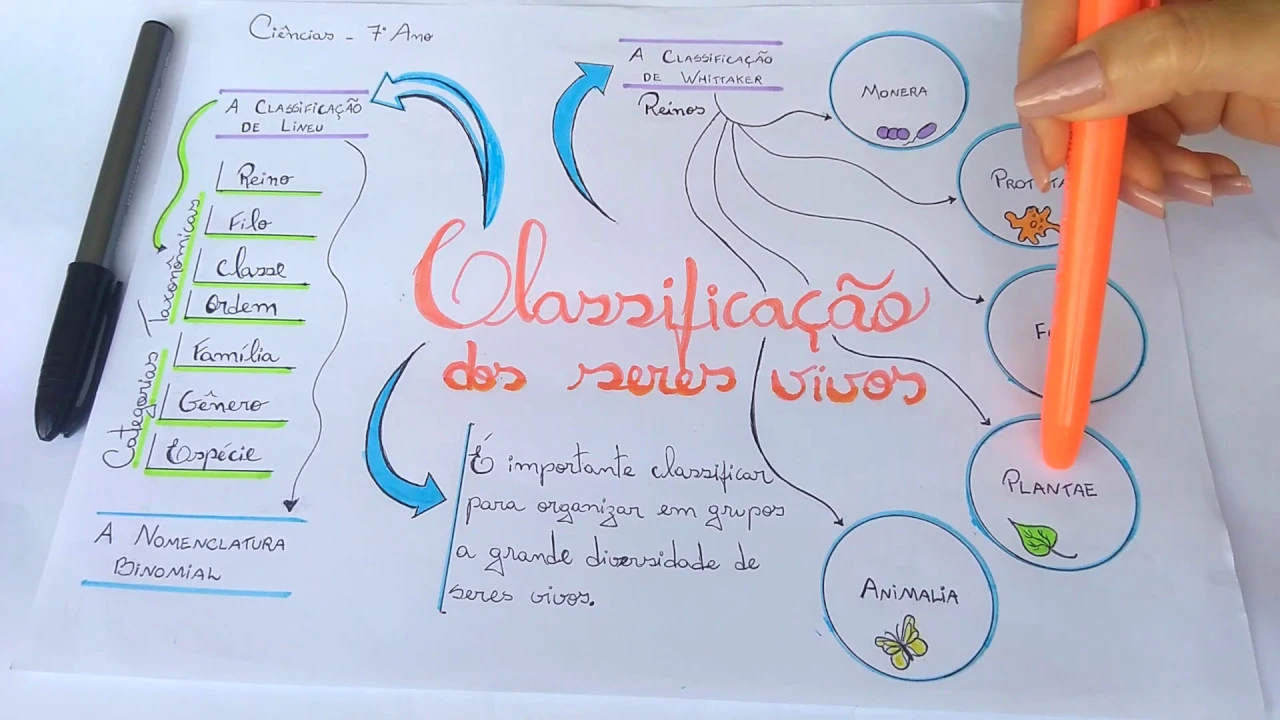 Ciências - 7º Ano
A CLASSIFICAÇÃO
DE LINEU
Categorias Taxonômicas
Reino
Filo
Classe
Ordem
Família
Gênero
Espécie
A NOMENCLATURA
BINOMIAL
A CLASSIFICAÇÃO
DE WHITTAKER
Reinos
MONERA
PLANTAE
ANIMALIA
Classificação
dos seres vivos
É importante classificar
para organizar em grupos
a grande diversidade de
seres vivos.